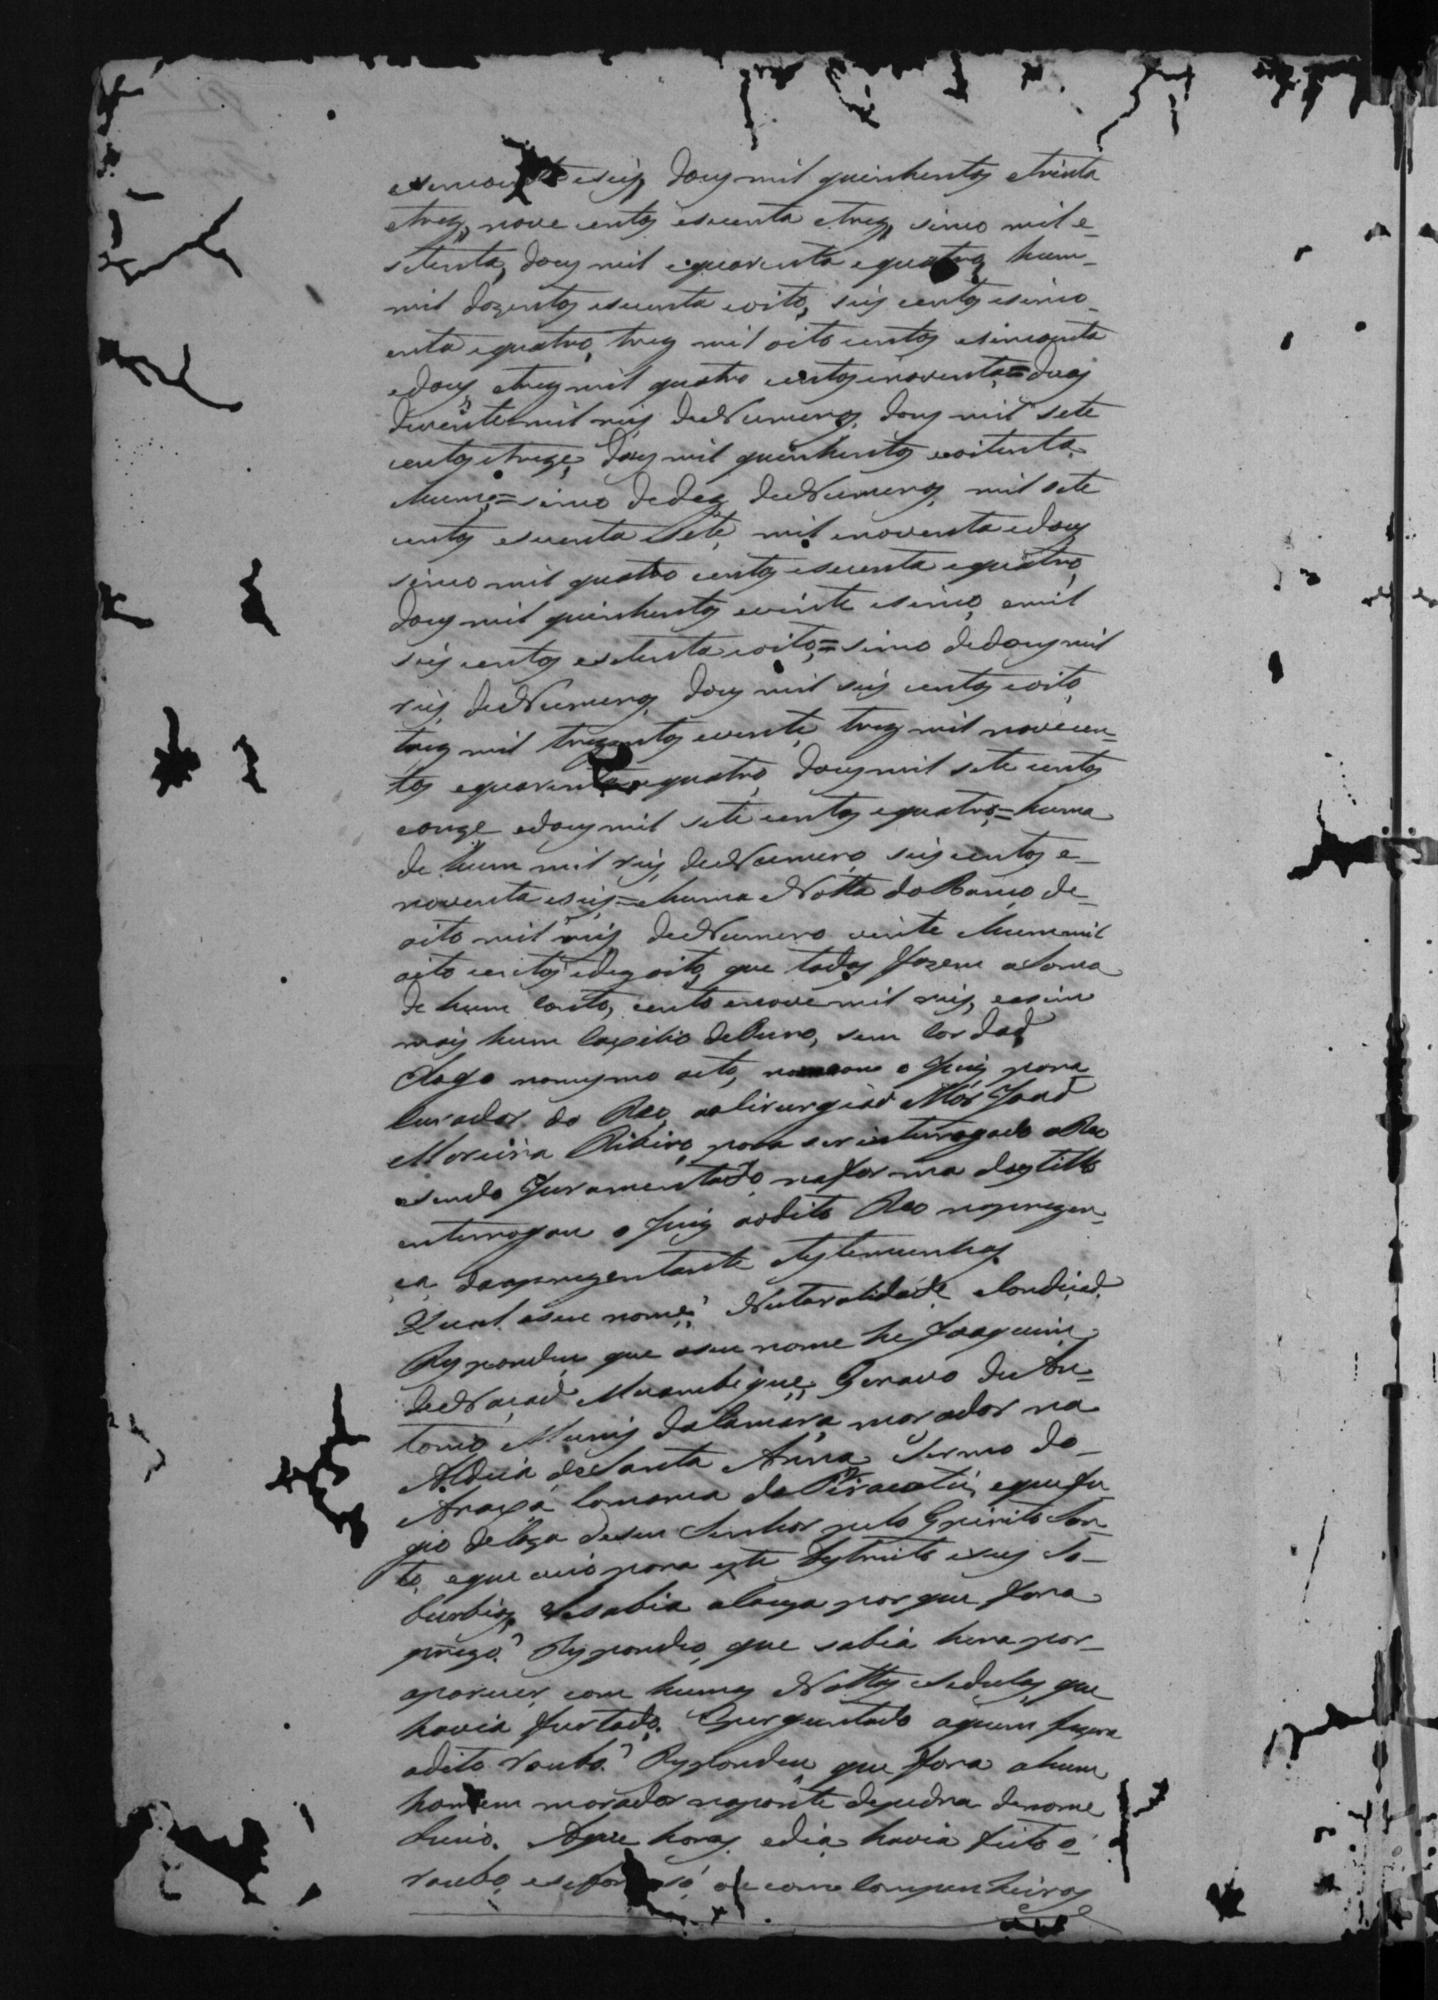 esincoenta eseis, dous mil quinhentos etrinta
etres, nove centos esecenta etres, sinco mil e-
setenta, dous mil equarenta equatro, hum-
mil dozentos esecenta eoito, seis centos esinco-
enta equatro, tres mil oito centos esincoenta
edous, etres mil quatro centos enoventa,= duas
devinte mil reis deNumeros, dous mil sete
centos etreze, dous mil quinhentos eoitenta
ehum,= sinco dedez deNumeros, mil sete
centos esecenta esete, mil enoventa edous
sinco mil quatro centos esecenta equatro,
dous mil quinhentos evinte esinco, emil
seis centos esetenta eoito,= sinco dedous mil
reis, deNumeros, dous mil seis centos eoito,
tres mil trezentos evinte, tres mil novecen-
tos equarenta equatro, dous mil sete centos
eonze edous mil sete centos equatro,= huma
de hum mil reis, deNumero, seis centos e-
noventa eseis,= huma Notta doBanco de-
oito mil reis, deNumero vinte ehum mil
oito centos edezoito, que todas fazem aSoma
de hum conto, cento enove mil reis, easim
mais hum Caxilio deCuro, sem Cordaõ
Elogo nomesmo acto, o Juiz para
Curador do Reo, aoCirurgiaõ Mór Joaõ
Moreira Ribeiro, para ser interrogado oReo
esendo Juramentado, naforma doestillo
enterrogou o Juiz aodito Reo naprezen-
ca dasprezentante testemunhas.
Qual oseu nome? Naturalidade, eCondiçaõ.
Respondeu, que oseu nome he Joaquim
deNaçaõ Mosambique, Escravo de An-
tonio Munis daCamara, morador na
Aldeia deSanta Anna Termo do-
Araxá Comarca doParacatú, equefu-
gio deCaza deseu Senhor pelo Espirito San-
to, eque veio para este destricto eseus Su-
burbios. Sesabia aCauza por que fora
prezo? Respondeo, que sabia hera por-
aparecer, com humas Nottas eSedulas, que
havia furtado. Eperguntado aquem fizera
odito roubo? Respondeu que fora ahum
homem morador naponte depedra denome
Aque horas, edia havia feito o-
roubo, esefora só, ou com Companheiros